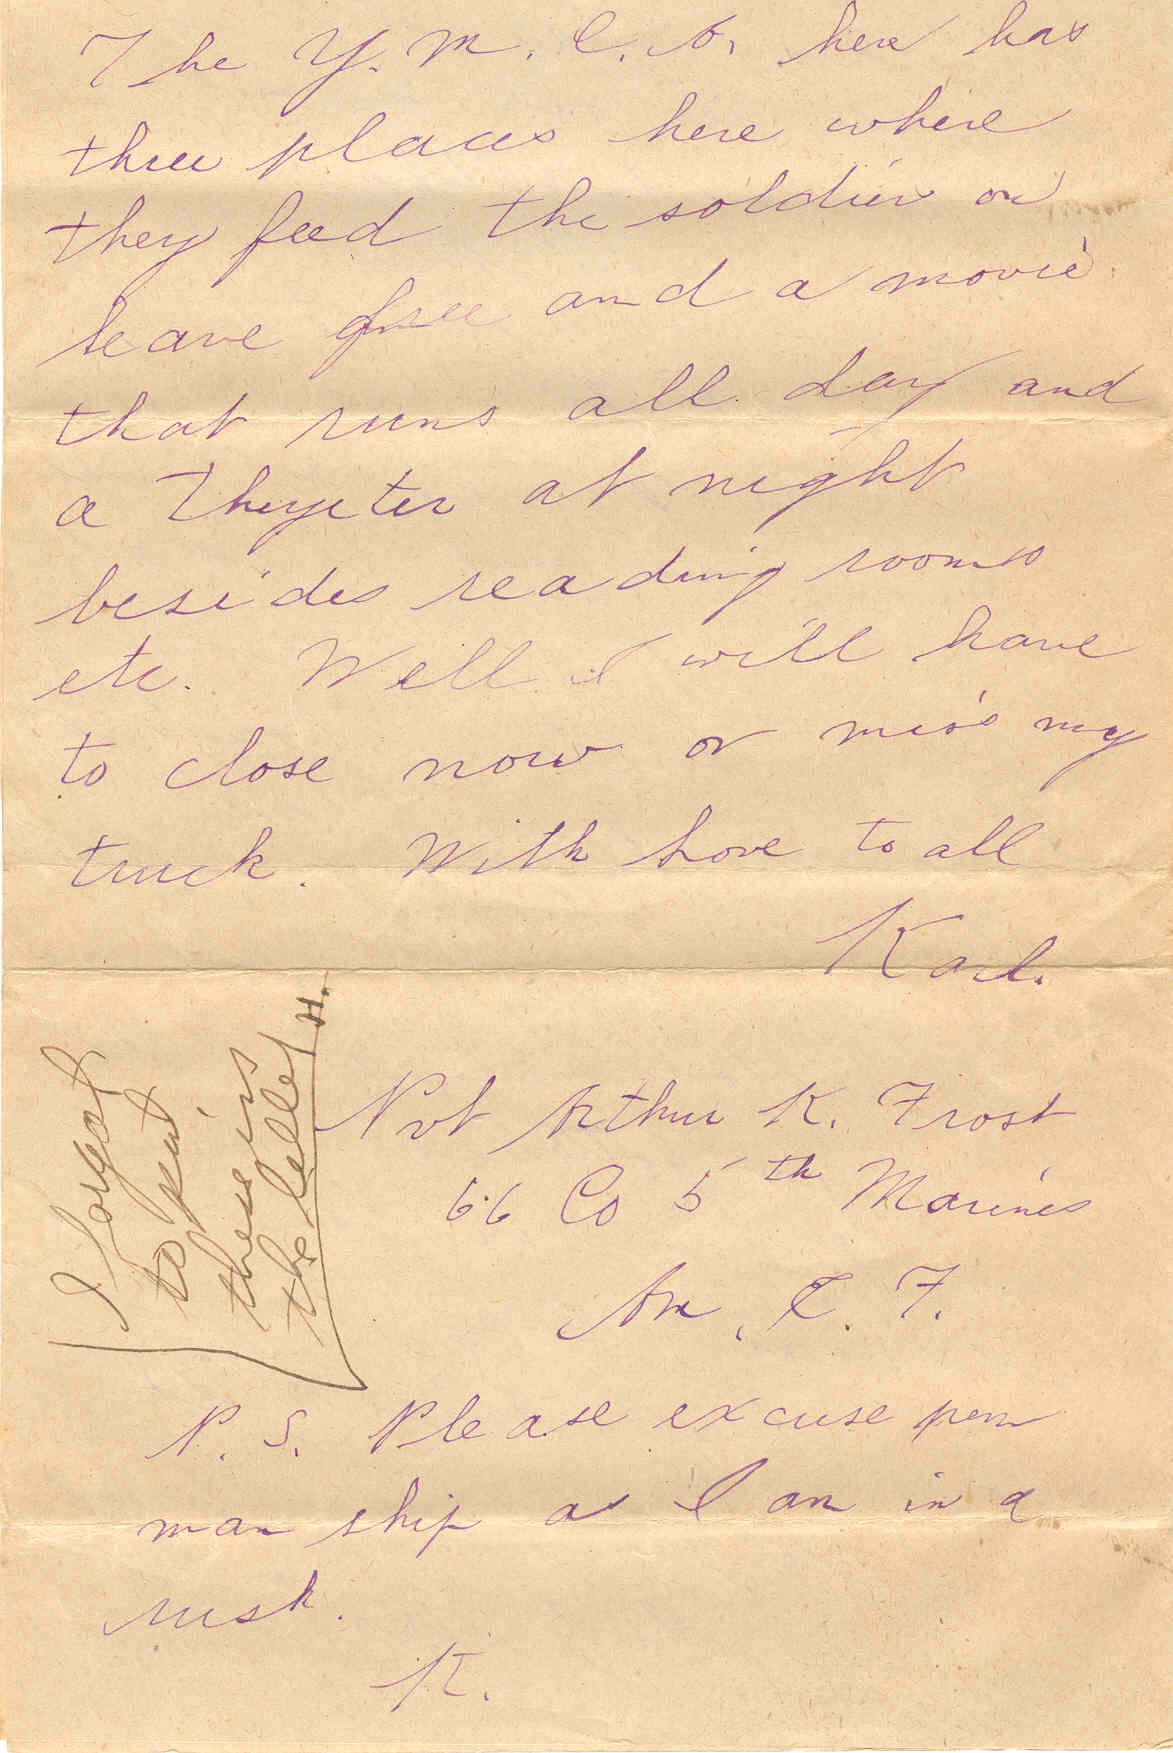 The Y.M.C.A. here has
three places here where
they feed the soldier on
leave free and a movie
that runs all day and
a Theyeter at night
besides reading rooms
etc. Well I will have
to close now or miss my
truck. With love to all
Karl.
I forgot
to put
these in
the letter
H.
Pvt Arthur K. Frost
66 Co 5th Marines
Am. E. F.
P. S. Please excuse pen
man ship as I am in a
rush.
K.